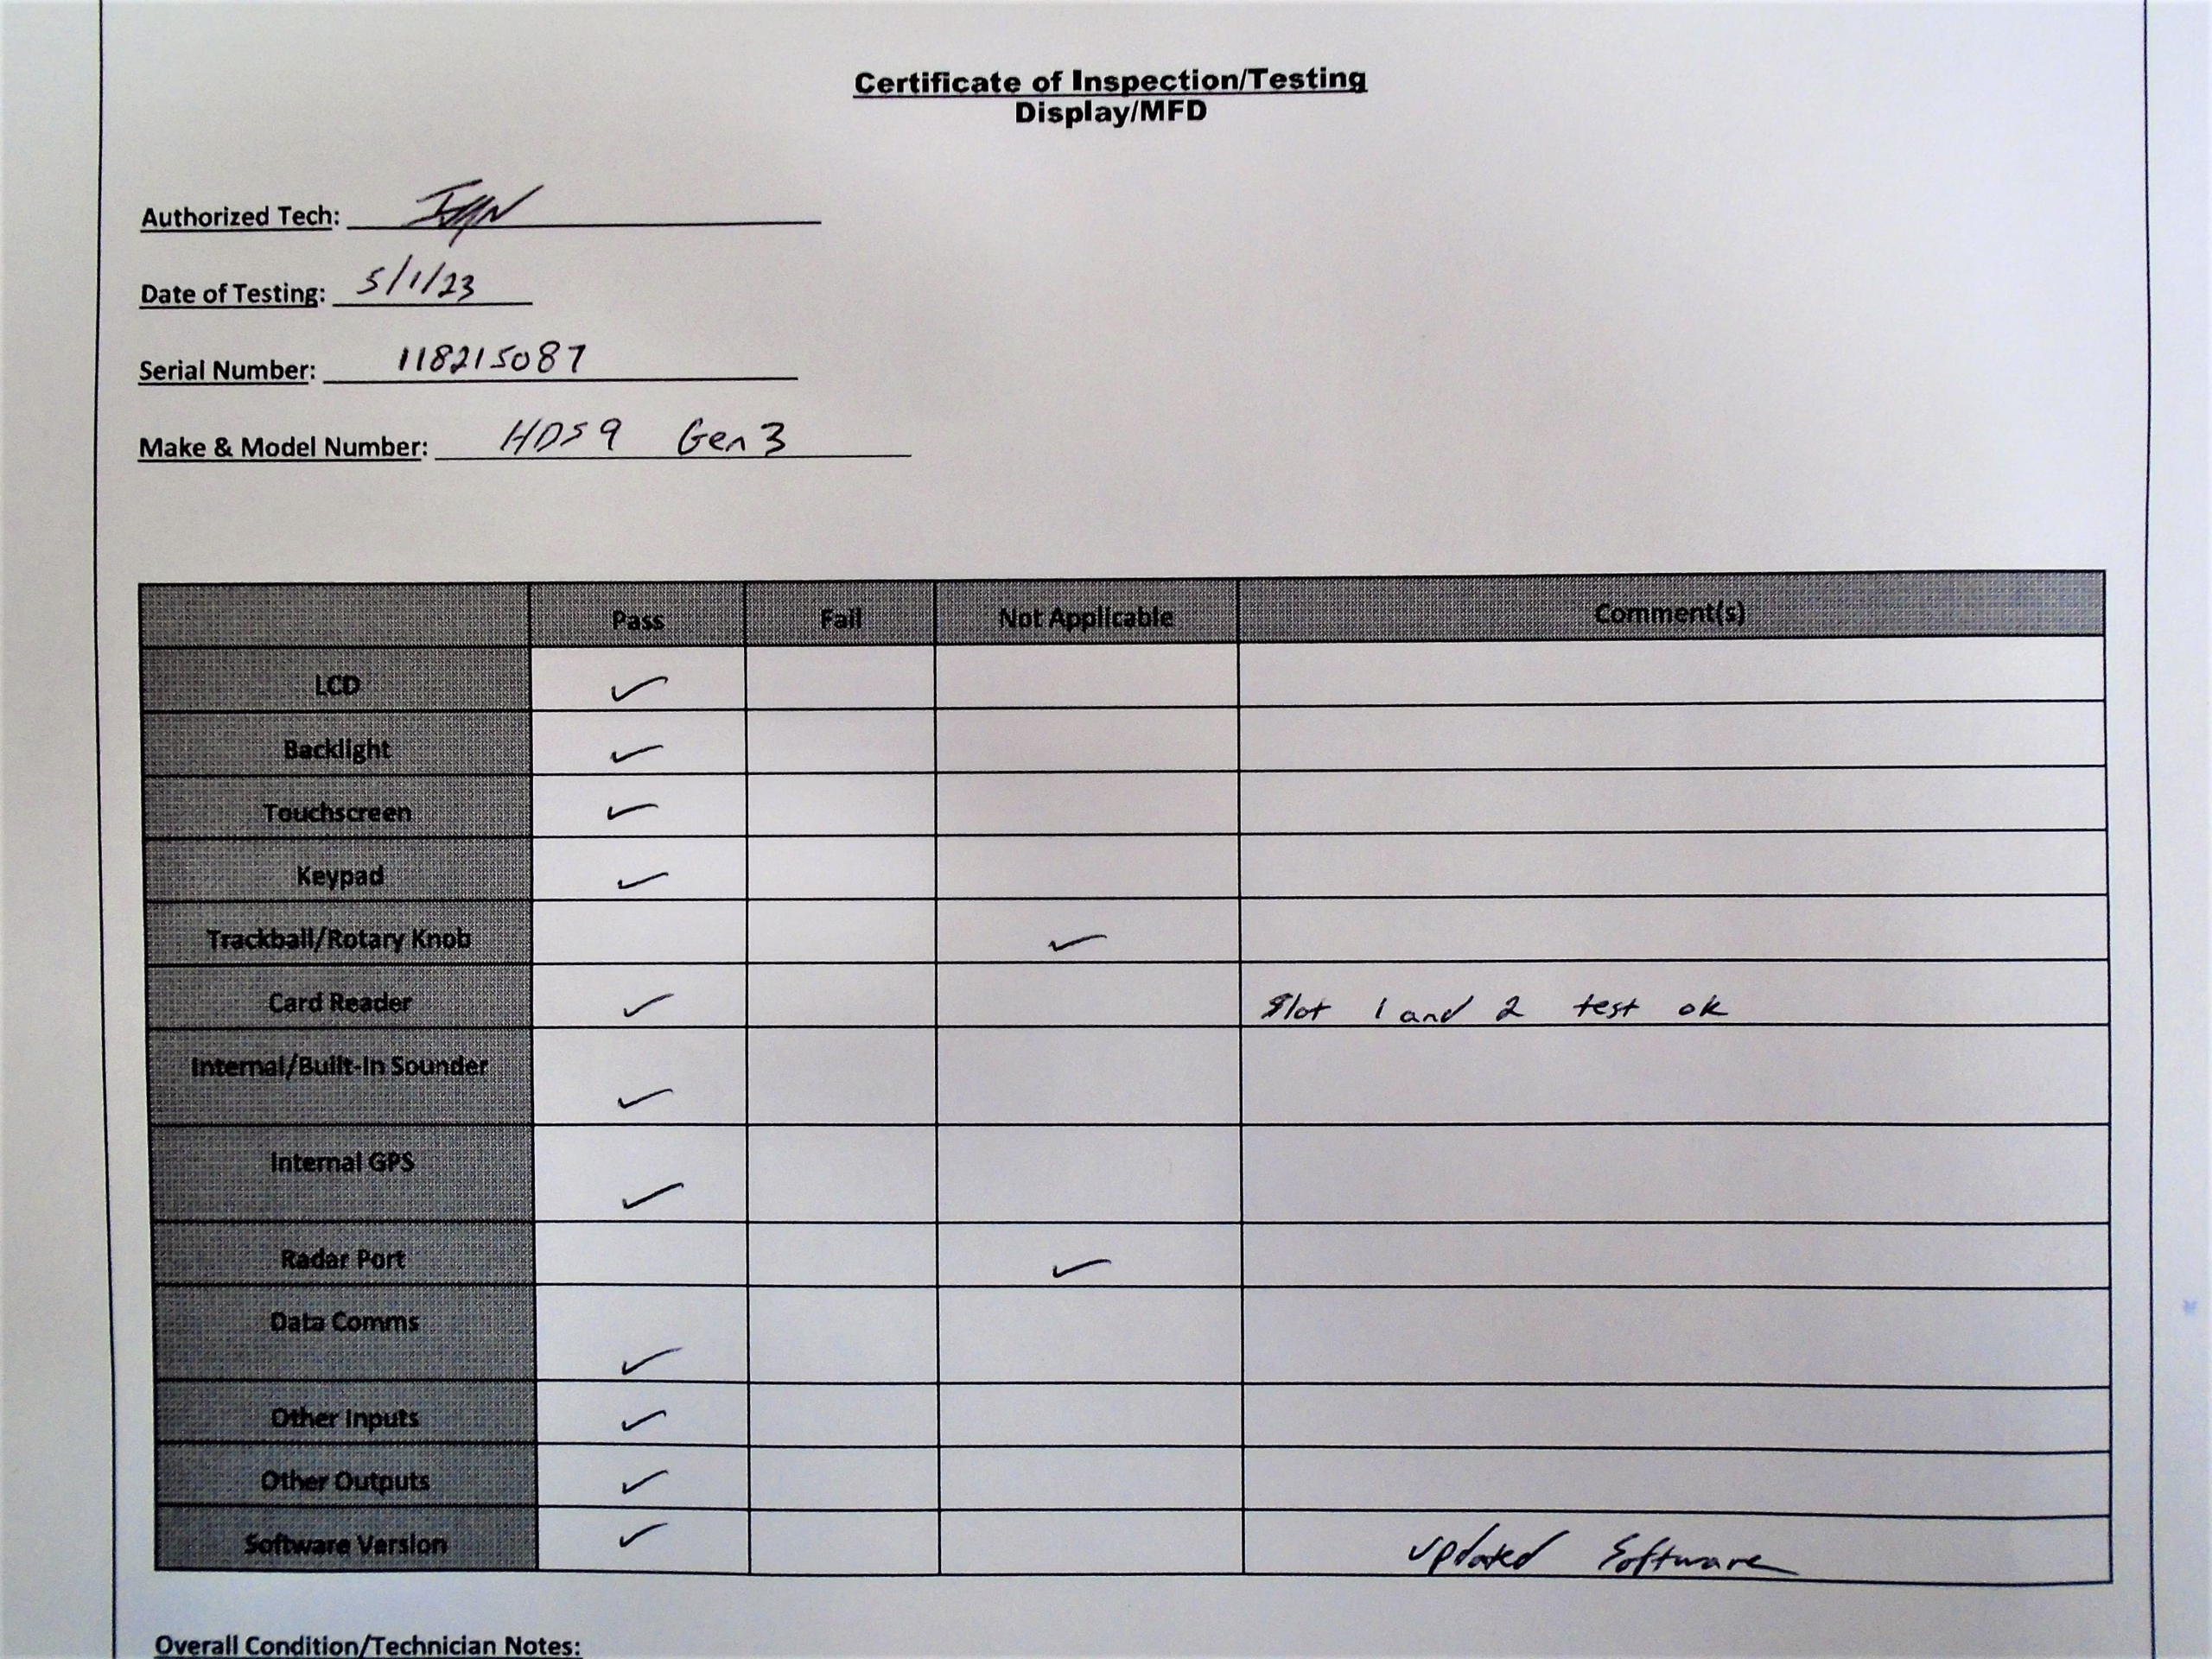 Certificate of Inspection/Testing
Display/MFD
Authorized Tech:
Date of Testing: 5/1/23
Serial Number: 118215087
Make & Model Number: HDS9 Gen 3
Pass Fail Not Applicable Comment(s)
LCD ✓
Backlight ✓
Touchscreen ✓
Keypad ✓
Trackball/Rotary Knob ✓
Card Reader ✓ Slot 1 and 2 test ok
Internal/Built-In Sounder ✓
Internal GPS ✓
Radar Port ✓
Data Comms ✓
Other Inputs ✓
Other Outputs ✓
Software Version ✓ updated Software
Overall Condition/Technician Notes: